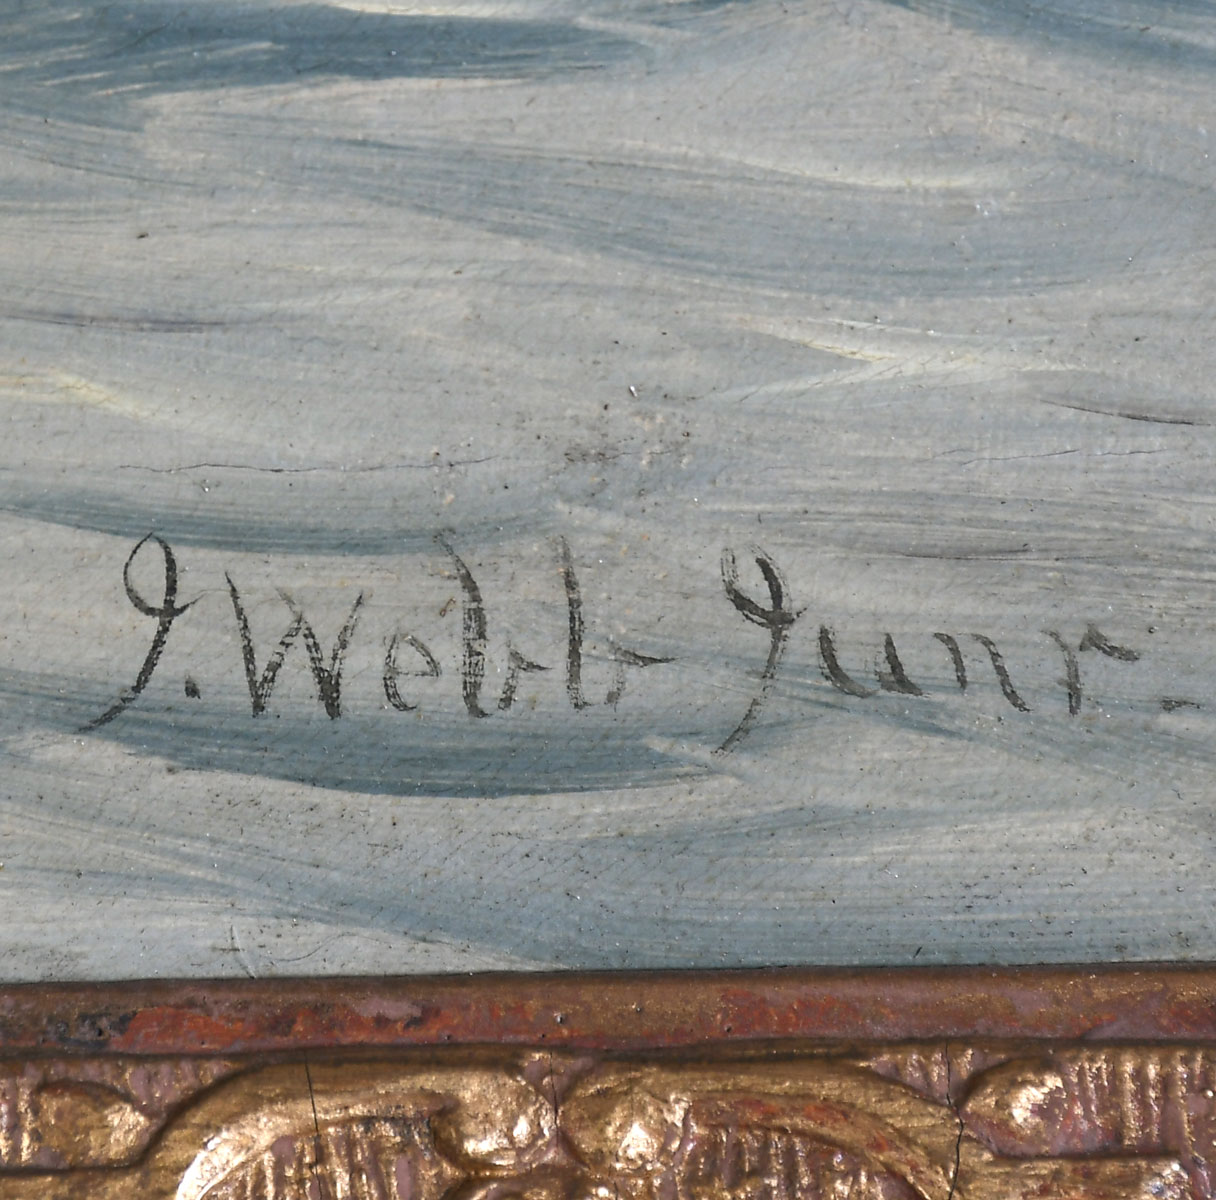 J. Webb Junr.